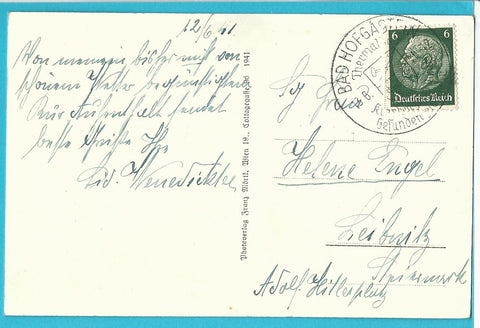 12/6 41
Von meinem bisher mit von
schönem Wetter begünstigten
Kur Aufenthalt sendet
beste Grüsse Ihr
Lid. Venedikter
1941
Photoverlag Franz Mörtl, Wien
BAD HOFGASTEIN
Thermal
Gesunden
6 6
Deutsches Reich
Frau
Helene Engel
Leibnitz
Steiermark
Adolf Hitlerplatz